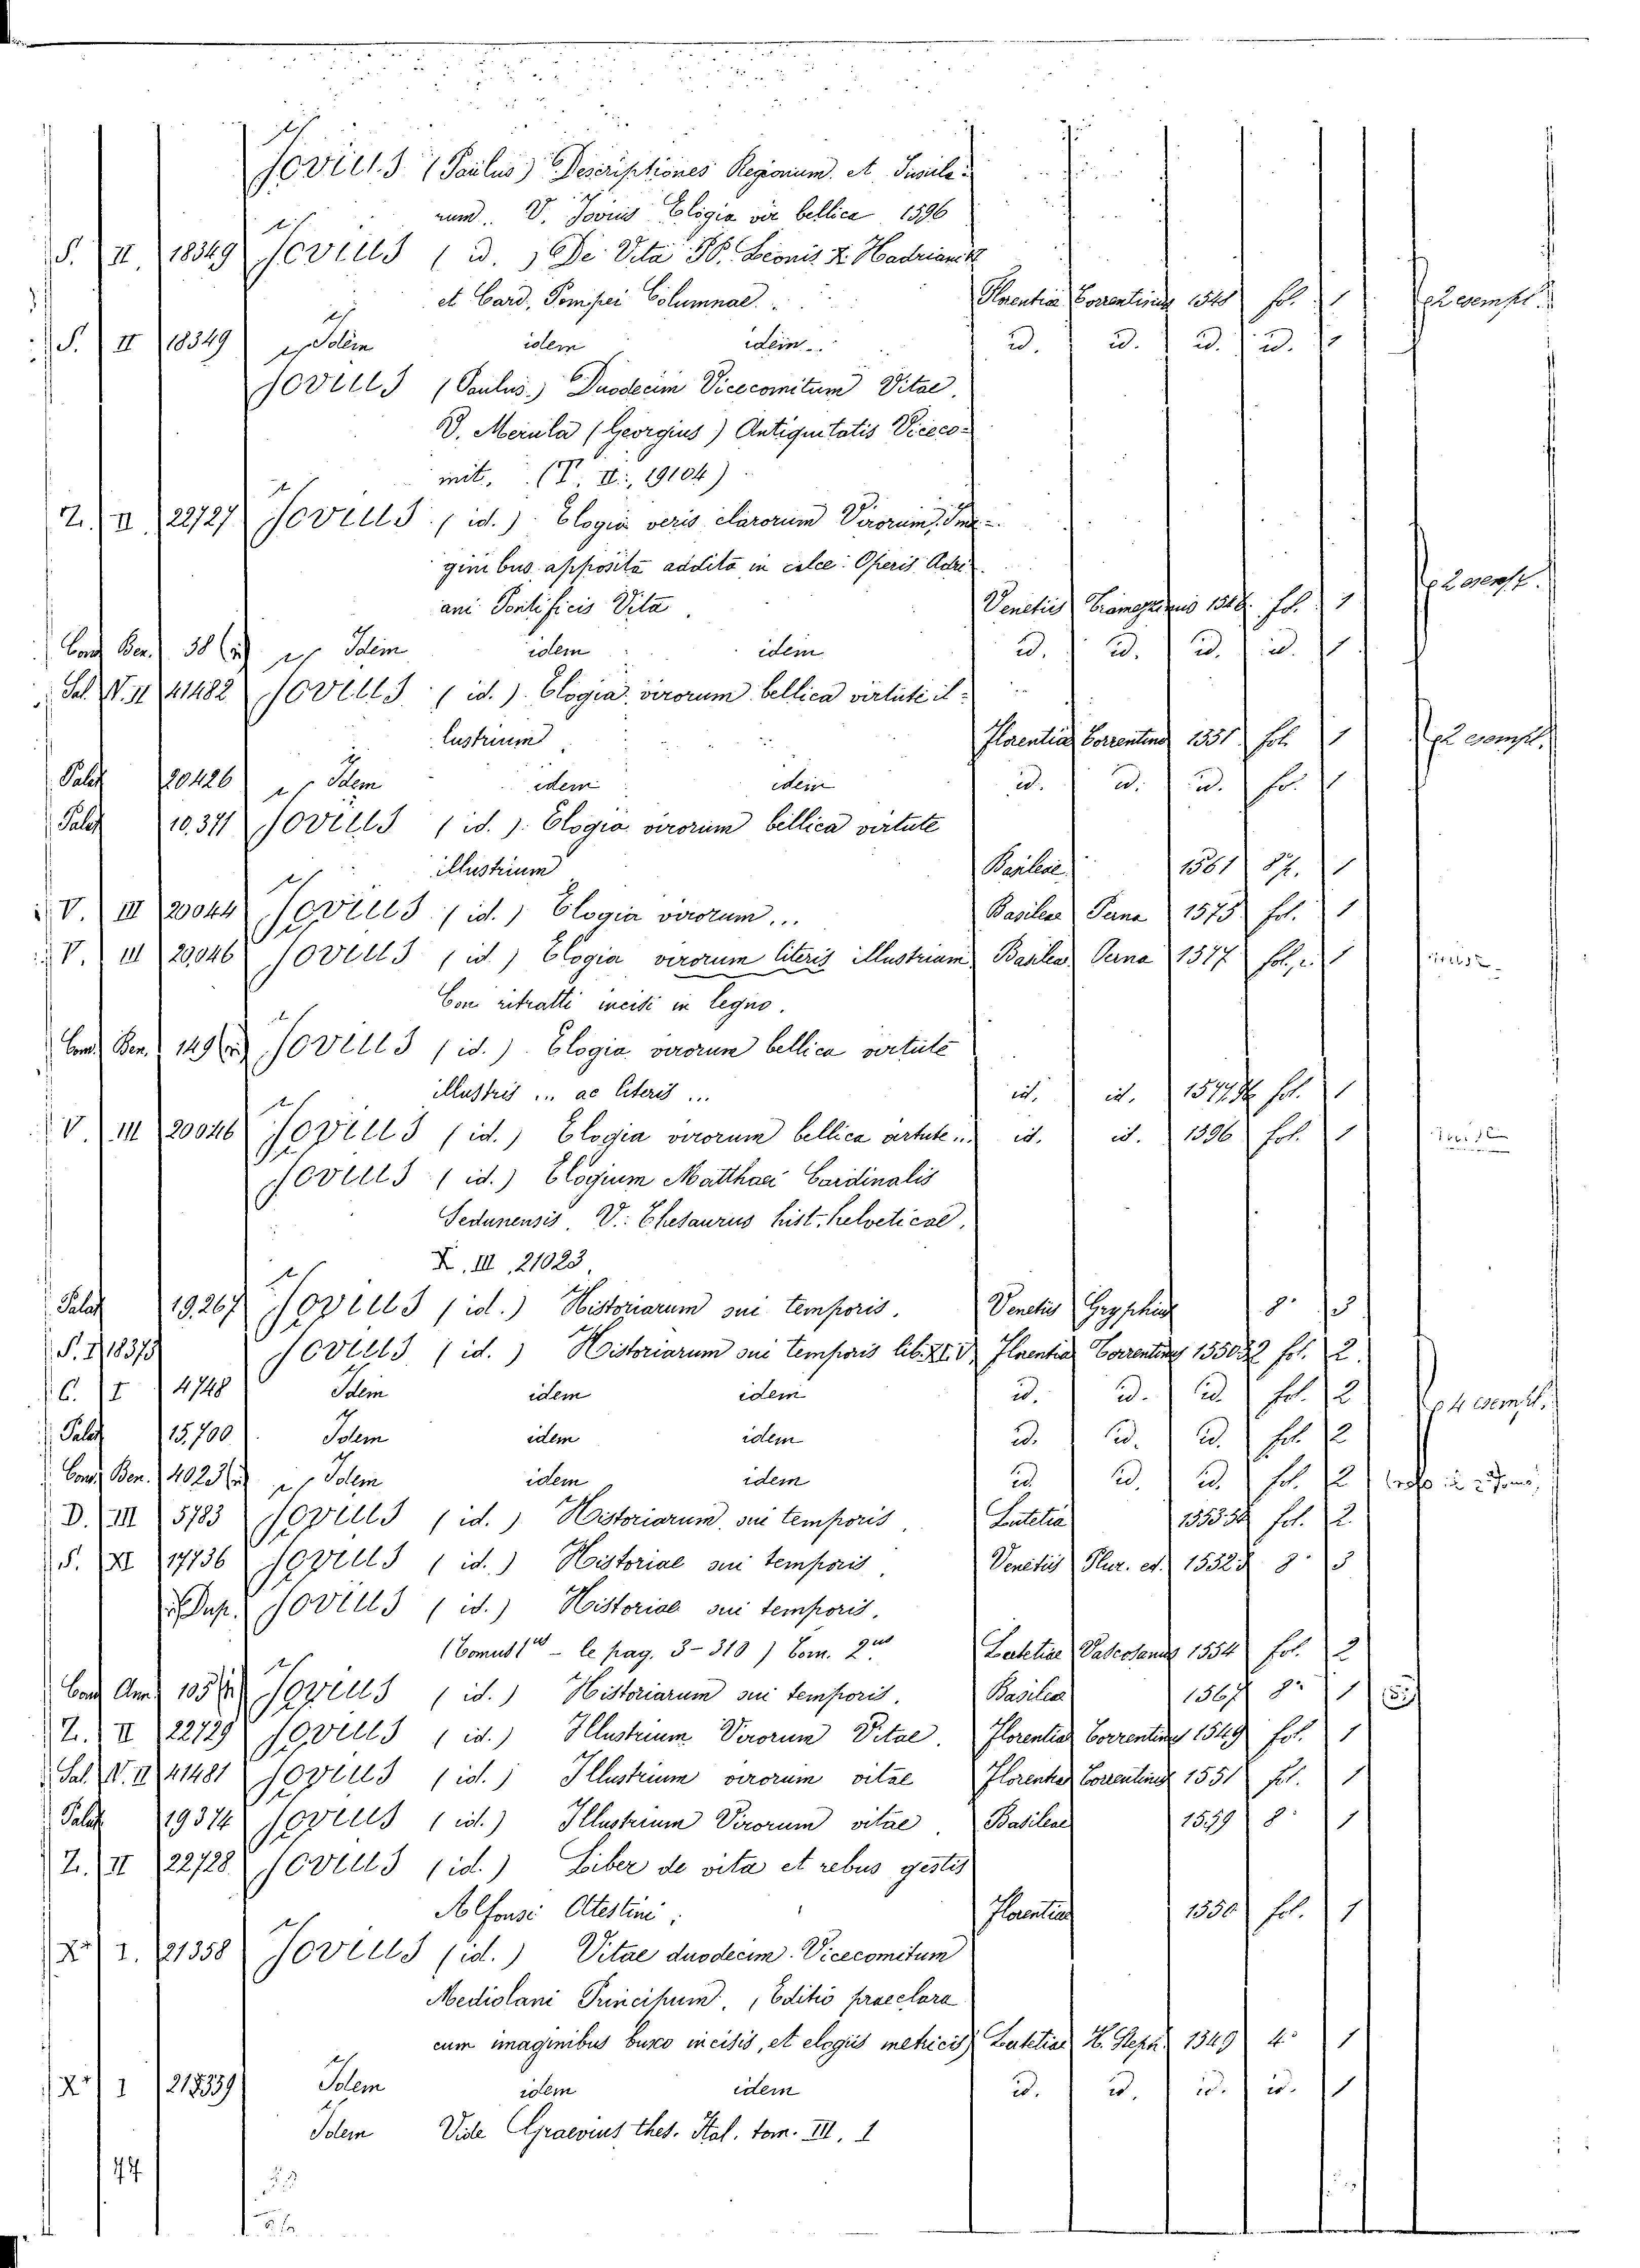 Jovius (Paulus) Descriptiones Regionum et Insula-
rum. V. Jovius Elogia vir bellica 1596
S. II 18349 Jovius (id.) De Vita PP. Leonis X. Hadriani
et Card. Pompei Columnae. Florentiae Torrentinus 1548 fol. 1 2 esempl.
S. II 18349 Idem idem idem id. id. id. id. 1
Jovius (Paulus) Duodecim Vicecomitum Vitae.
V. Merula (Georgius) Antiquitatis Viceco-
mit. (T. II. 19104)
Z. II 22727 Jovius (id.) Elogia veris clarorum Virorum Ima-
ginibus apposita addita in calce Operis Adri-
ani Pontificis Vita Venetiis 1546 fol. 1 2 esempl.
Cons Ben. 38 Idem idem idem id. id. id. id. 1
Sal. V. II 41482 Jovius (id.) Elogia virorum bellica virtute il-
lustrium Florentiae Torrentinus 1551 fol. 1 2 esempl.
Palat 20426 Idem idem idem id. id. id. fol. 1
Palat 10.371 Jovius (id.) Elogia virorum bellica virtute
illustrium Basileae 1561 8º. 1
V. III 20044 Jovius (id.) Elogia virorum... Basileae Perna 1575 fol. 1
V. III 20046 Jovius (id.) Elogia virorum literis illustrium Basileae Perna 1577 fol. 1
Con ritratti incisi in legno.
Cons Ben. 149 Jovius (id.) Elogia virorum bellica virtute
illustris ... ac literis ... id. id. 1577.96 fol. 1
V. III 20046 Jovius (id.) Elogia virorum bellica virtute... id. id. 1596 fol. 1
Jovius (id.) Elogium Matthaei Cardinalis
Sedunensis. V. Thesaurus hist. helveticae.
X. III. 21023.
Palat 19.267 Jovius (id.) Historiarum sui temporis. Venetiis Gryphius 8º 3
S. I 18375 Jovius (id.) Historiarum sui temporis lib. XLV Florentiae Torrentinus 1550.52 fol. 2.
C. I 4748 Idem idem idem id. id. id. fol. 2 4 esempl.
Palat 15.700 Idem idem idem id. id. id. fol. 2
Cons Ben. 4023 Idem idem idem id. id. id. fol. 2
D. III 5783 Jovius (id.) Historiarum sui temporis, Lutetia 1553.54 fol. 2.
S. XI 17736 Jovius (id.) Historiae sui temporis Venetiis Plur. ed. 1552.3 8º 3
Dup. Jovius (id.) Historiae sui temporis.
(Tomus 1us - le pag. 3-310) Tom. 2us Lutetiae Vascosanus 1554 fol. 2
Cons Ann. 105 Jovius (id.) Historiarum sui temporis. Basileae 1567 8º 1
Z. II 22729 Jovius (id.) Illustrium Virorum Vitae. Florentiae Torrentinus 1549 fol. 1
Sal. V. II 41481 Jovius (id.) Illustrium virorum vitae Florentiae Torrentinus 1551 fol. 1
Palat 19374 Jovius (id.) Illustrium Virorum vitae. Basileae 1559 8º 1
Z. II 22728 Jovius (id.) Liber de vita et rebus gestis
Alfonsi Atestini. Florentiae 1550 fol. 1
X. I. 21358 Jovius (id.) Vitae duodecim Vicecomitum
Mediolani Principum, (Editio praeclara
cum imaginibus buxo incisis, et elogiis metricis) Lutetiae R. Steph. 1549 4º 1
X. I 21339 Idem idem idem id. id. id. id. 1
Idem Vide Graevius thes. Ital. tom. III. 1
44